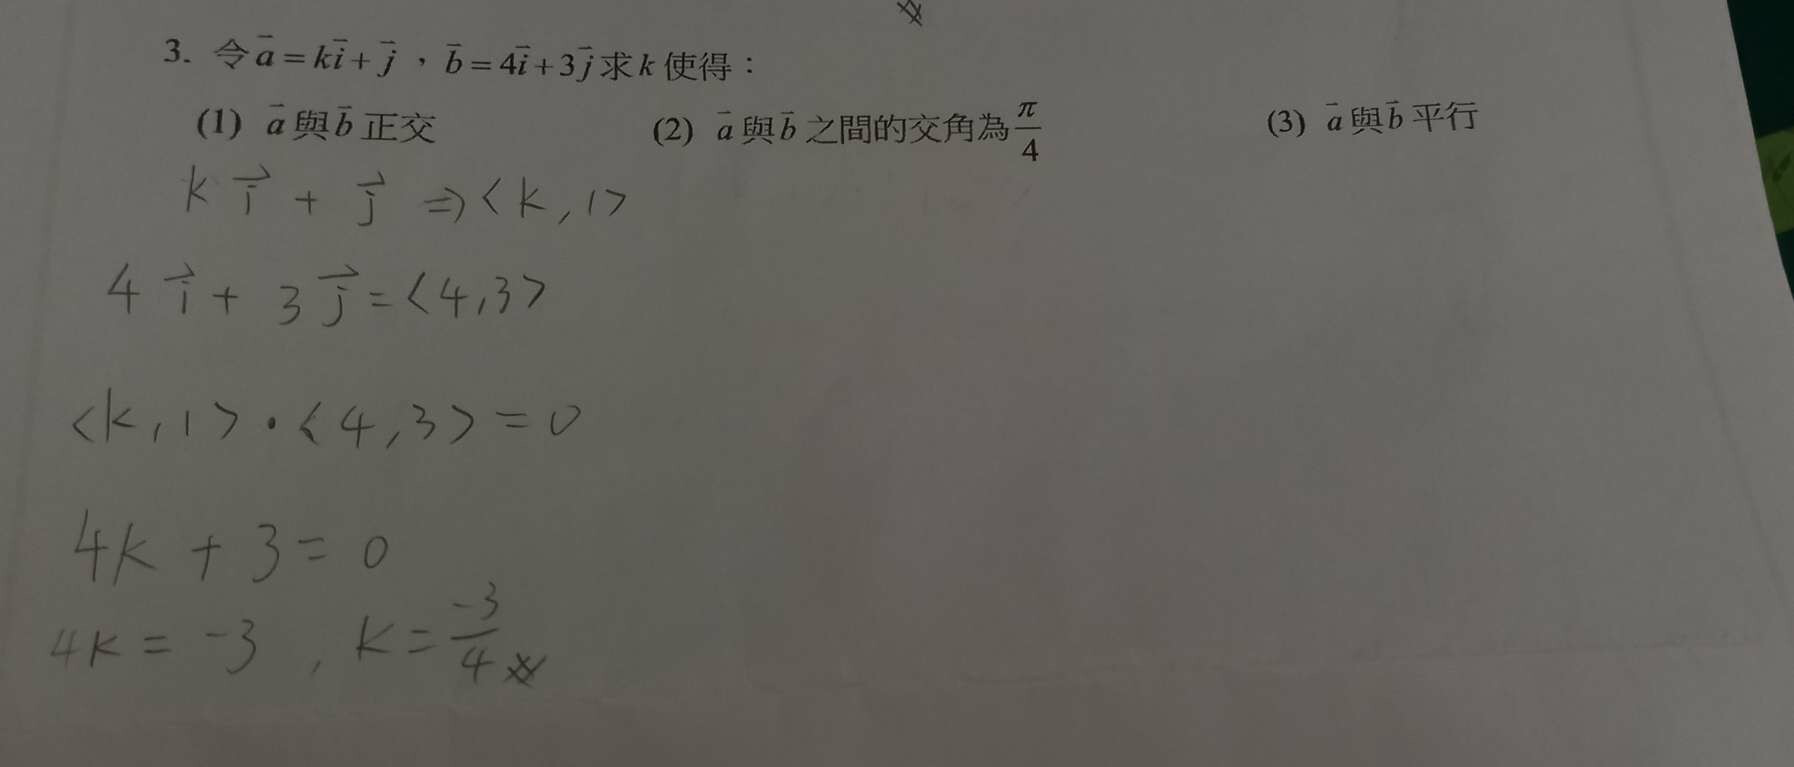 3. 令 a⃗ = k i⃗ + j⃗ ， b⃗ = 4 i⃗ + 3 j⃗ 求 k 使得：
(1) a⃗ 與 b⃗ 正交 (2) a⃗ 與 b⃗ 之間的交角為 π/4 (3) a⃗ 與 b⃗ 平行
k i⃗ + j⃗ ⇒ <k, 1>
4 i⃗ + 3 j⃗ = <4, 3>
<k, 1> · <4, 3> = 0
4k + 3 = 0
4k = -3 , k = -3/4